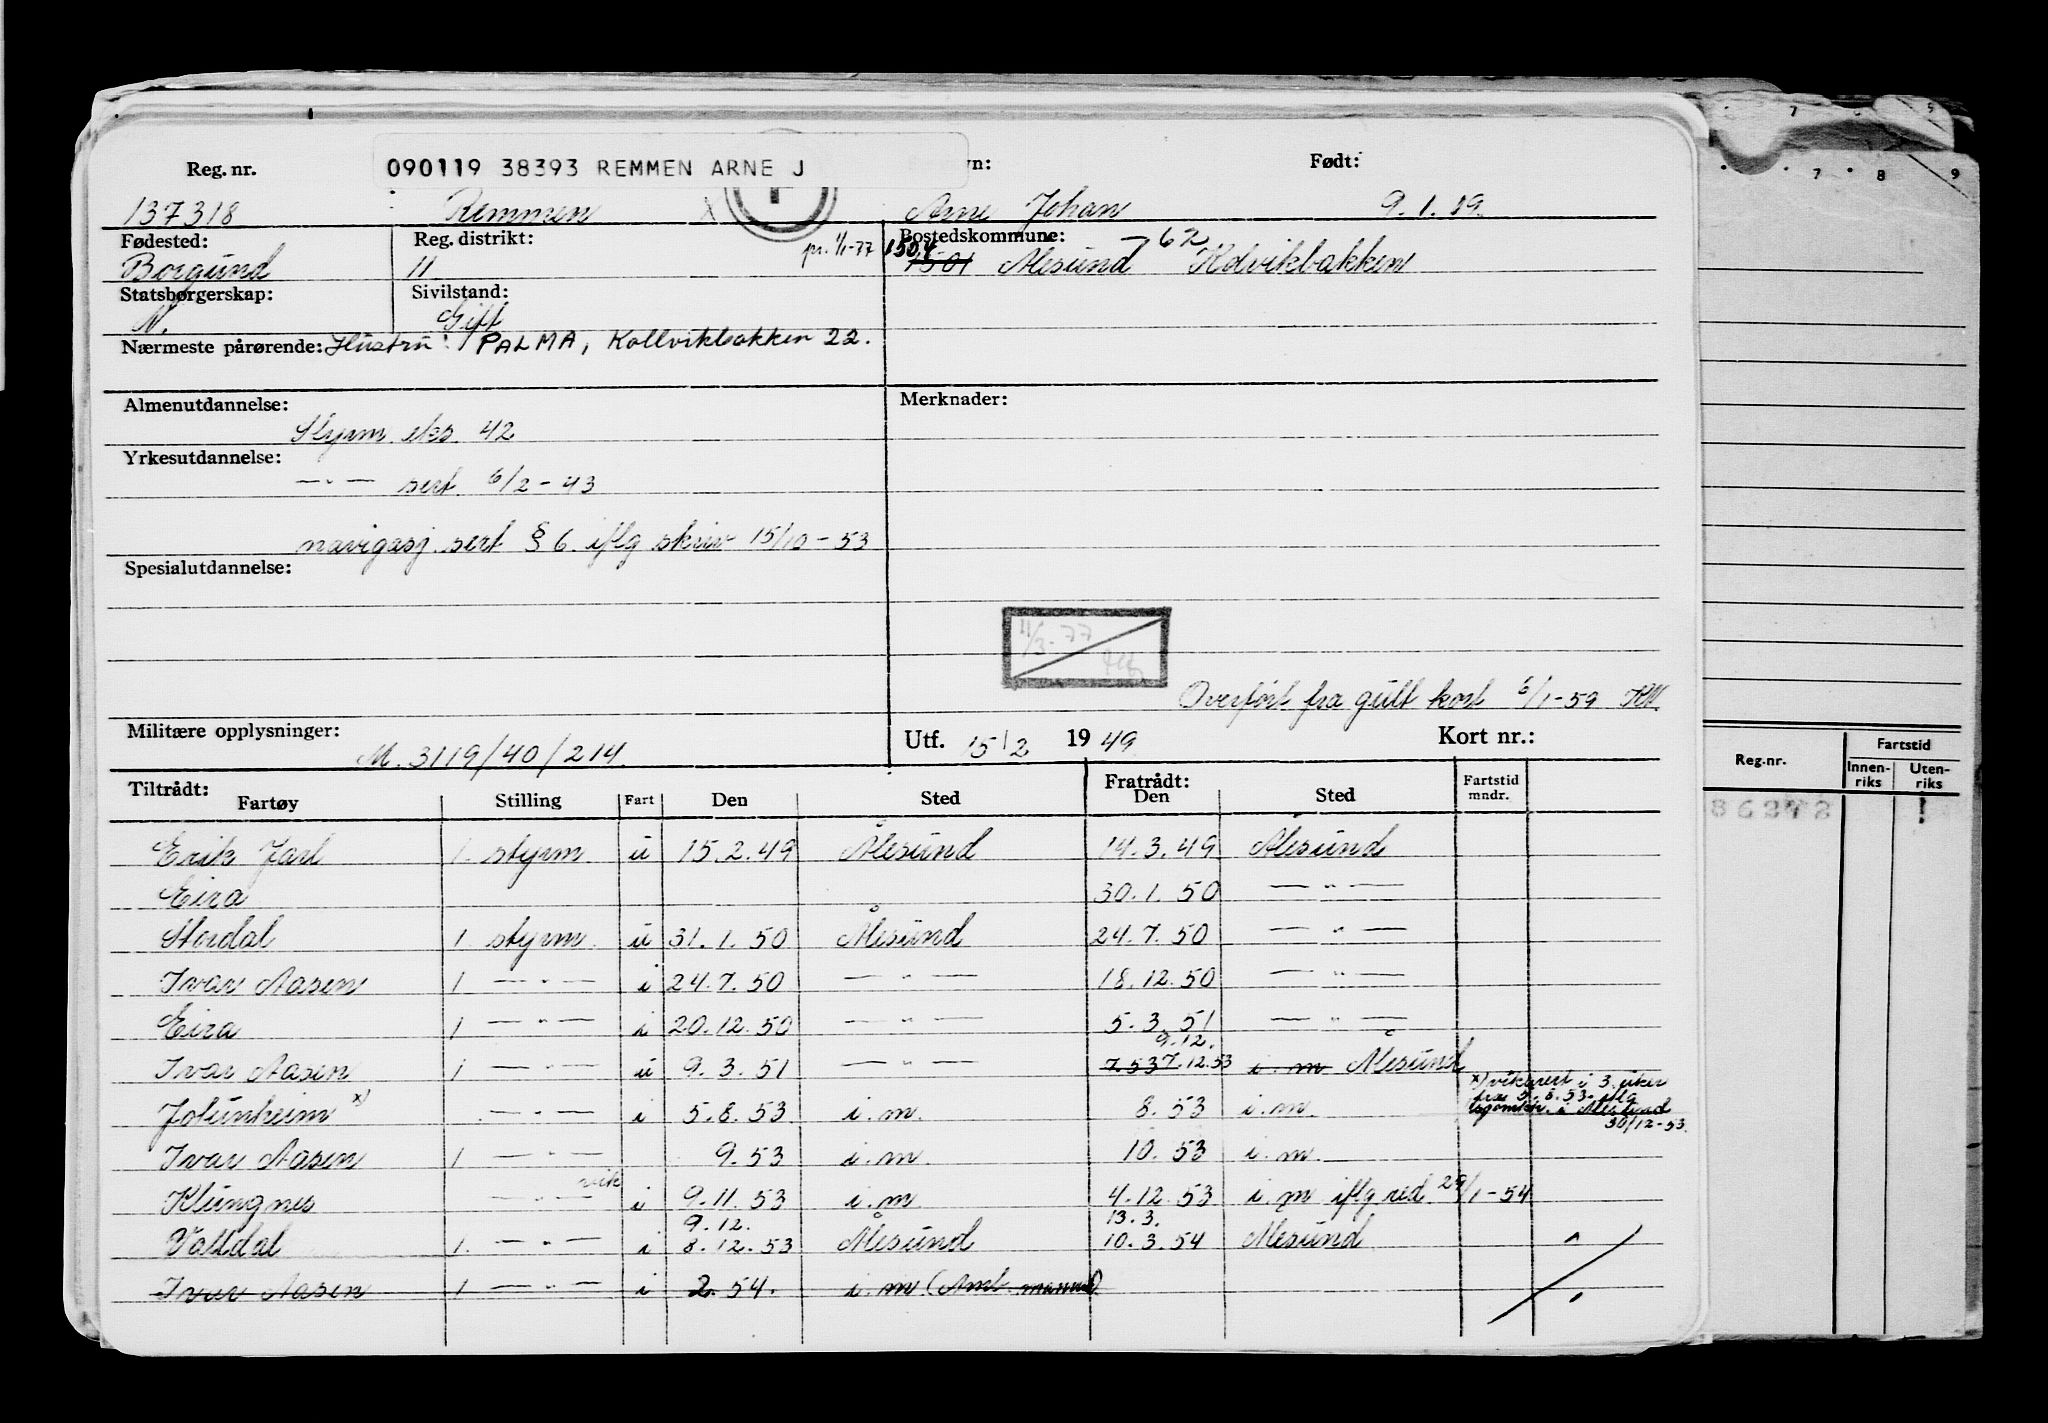 Reg. nr. 090119 38393 REMMEN ARNE J vn: Født:
137318 Remmen X Arne Johan 9.1.19.
Fødested: Reg. distrikt: Bostedskommune: 62
Borgund 11 pr. 1/1-77 1504 1501 Ålesund Kolvikbakken
Statsborgerskap: Sivilstand:
N. Gift
Nærmeste pårørende: Hustru: PALMA, Kollvikbakken 22.
Almenutdannelse: Merknader:
Styrm eks. 42
Yrkesutdannelse:
— " — sert. 6/2-43
navigasj. sert § 6. iflg skriv 15/10-53
Spesialutdannelse:
11/3-77
Overført fra gult kort 6/1-59 KM.
Militære opplysninger: Utf. 15/2 1949 Kort nr.:
M. 3119/40/214.
Tiltrådt: Fratrådt: Fartstid mndr.
Fartøy Stilling Fart Den Sted Den Sted
Erik Jarl 1. styrm u 15.2.49 Ålesund 14.3.49 Ålesund
Eira 30.1.50 — " —
Stordal 1 styrm. u 31.1.50 Ålesund 24.7.50 — " —
Ivar Aasen 1 — " — i 24.7.50 — " — 18.12.50 — " —
Eira 1 — " — i 20.12.50 — " — 5.3.51 — " —
9.12.
Ivar Aasen 1 — " — u 9.3.51 — " — 7.53 7.12.53 i. m Ålesund
x) vikariert i 3 uker
fra 5.8.53 iflg
Jotunheim x) — " — i 5.8.53 i. m. 8.53 i. m. i Ålesund
30/12-53.
Ivar Aasen 1 — " — 9.53 i. m. 10.53 i. m.
vik
Klungnes — " — i 9.11.53 i. m. 4.12.53 i. m iflg red 29/1-54
9.12. 13.3.
Valldal 1. — " — i 8.12.53 Ålesund 10.3.54 Ålesund
Ivar Aasen 1 — " — i 2.54. i. m (
Reg.nr. Fartstid
Innen-riks Uten-riks
86272 1
7 8 9